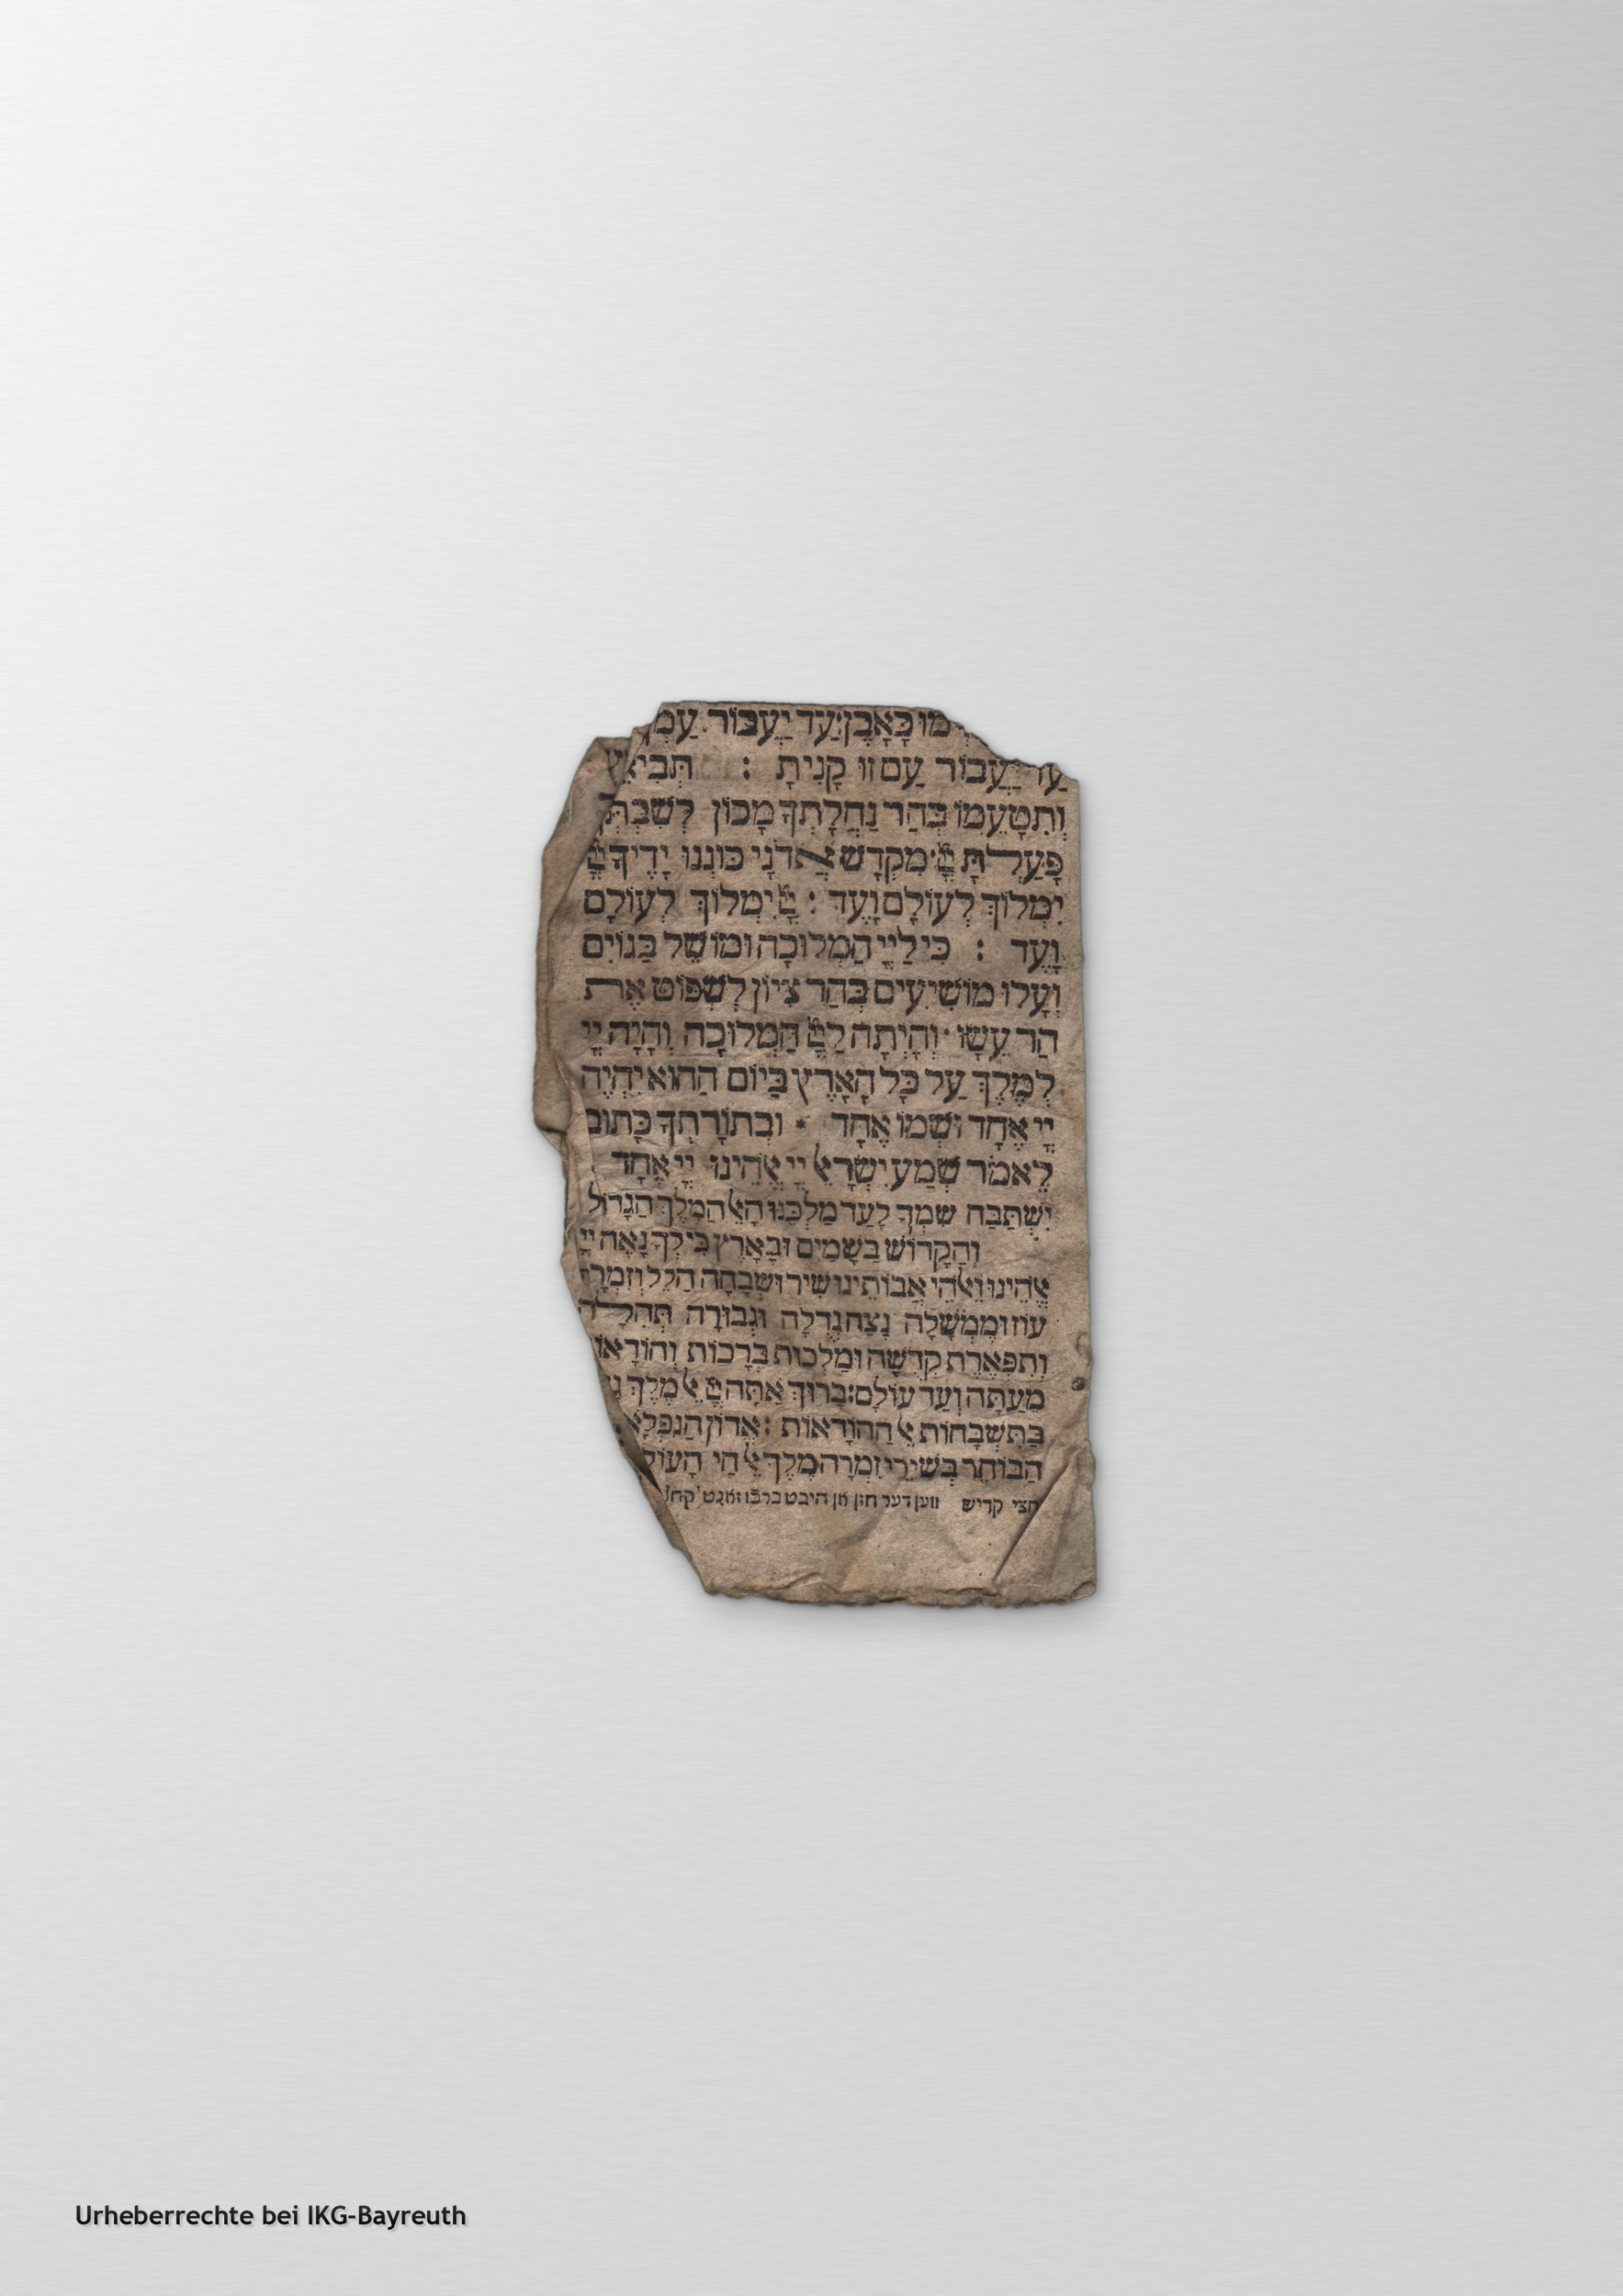 כָּאָבֶן:עַד יַעֲבוֹר עַמְּ
יַעֲבוֹר עַם זוּ קָנִיתָ : תְּבִיאֵ
וְתִטָעֵמוֹ בְּהַר נַחֲלָתְךָ מָכוֹן לְשִׁבְתְּךָ
פָּעַלְתָּ יְיָ מִקְדָשׁ אֲדֹנָי כּוֹנְנוּ יָדֶיךָ יְיָ
יִמְלוֹךְ לְעוֹלָם וָעֶד : יְיָ יִמְלוֹךְ לְעוֹלָם
וָעֶד : כִּי לַייָ הַמְלוּכָה וּמוֹשֵׁל בַּגוֹיִם
וְעָלוּ מוֹשִׁיעִים בְּהַר צִיוֹן לִשְׁפּוֹט אֶת
הַר עֵשָׂו · וְהָיְתָה לַיְיָ הַמְלוּכָה וְהָיָה יְיָ
לְמֶלֶךְ עַל כָּל הָאָרֶץ בַּיוֹם הַהוּא יִהְיֶה
יְיָ אֶחָד וּשְׁמוֹ אֶחָד * וּבְתוֹרָתְךָ כָּתוּב
לֵאמֹר שְׁמַע יִשְׂרָאֵל יְיָ אֱלֹהֵינוּ יְיָ אֶחָד
יִשְׁתַּבַּח שִׁמְךָ לָעַד מַלְכֵּנוּ הָאֵל הַמֶלֶךְ הַגָדוֹל
וְהַקָדוֹשׁ בַּשָׁמַיִם וּבָאָרֶץ כִּי לְךָ נָאֶה יְיָ
אֱלֹהֵינוּ וֵאלֹהֵי אֲבוֹתֵינוּ שִׁיר וּשְׁבָחָה הַלֵל וְזִמְרָה
עוֹז וּמֶמְשָׁלָה נֶצַח גְדֻלָה וּגְבוּרָה תְּהִלָה
וְתִפְאֶרֶת קְדֻשָׁה וּמַלְכוּת בְּרָכוֹת וְהוֹדָאוֹ
מֵעַתָּה וְעַד עוֹלָם: בָּרוּךְ אַתָּה יְיָ אֵל מֶלֶךְ
בַּתִּשְׁבָּחוֹת אֵל הַהוֹדָאוֹת : אֲדוֹן הַנִפְלָא
הַבּוֹחֵר בְּשִׁירֵי זִמְרָה מֶלֶךְ אֵל חַי הָעוֹל
חצי קדיש ווען דער חזן אן היבט ברכו זאגט קהל
Urheberrechte bei IKG-Bayreuth